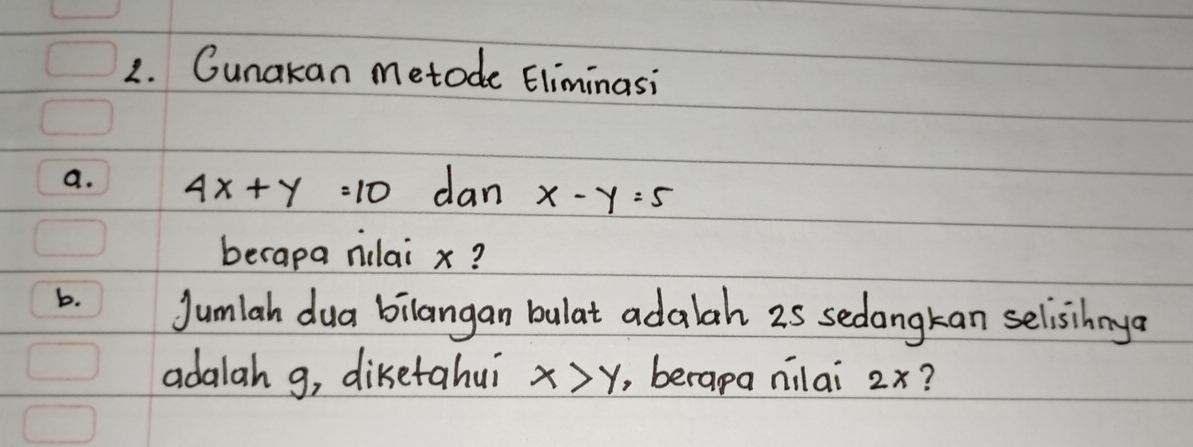 2. Gunakan Metode Eliminasi
a. 4x + y = 10 dan x - y = 5
berapa nilai x ?
b. Jumlah dua bilangan bulat adalah 25 sedangkan selisihnya
adalah 9, diketahui x > y, berapa nilai 2x ?